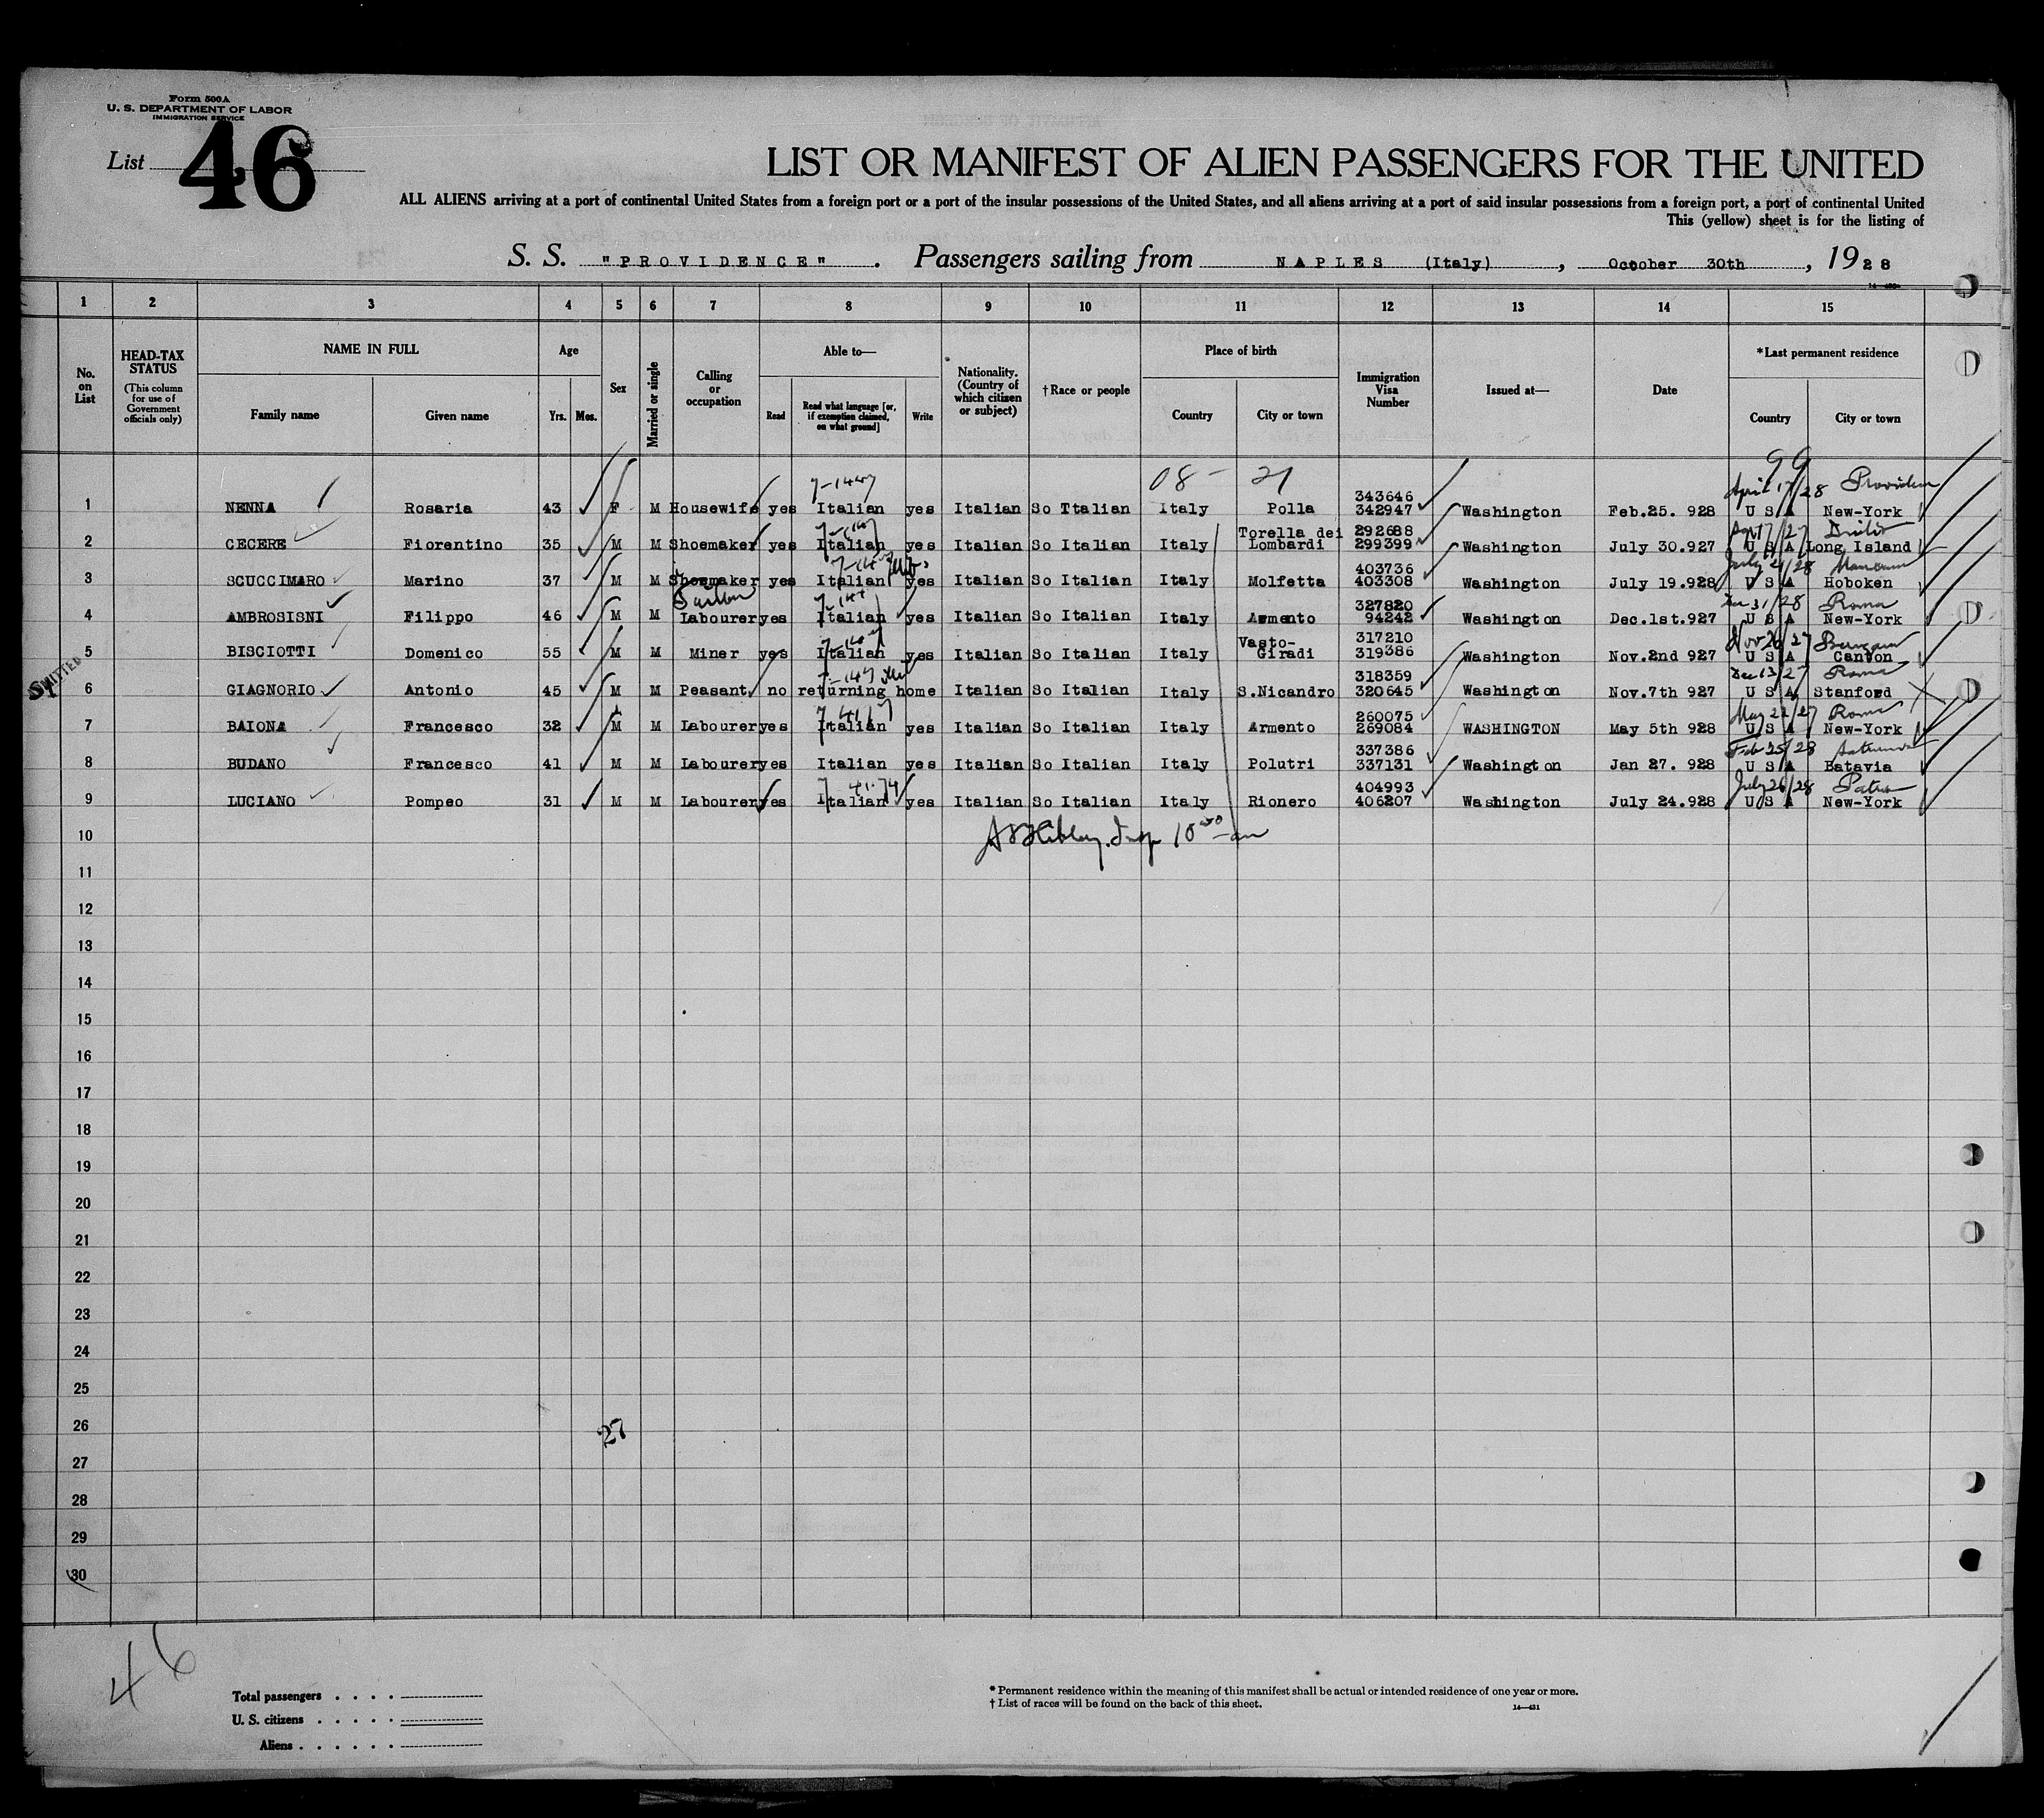 Form 500A
U. S. DEPARTMENT OF LABOR
IMMIGRATION SERVICE
List 46
LIST OR MANIFEST OF ALIEN PASSENGERS FOR THE UNITED
ALL ALIENS arriving at a port of continental United States from a foreign port or a port of the insular possessions of the United States, and all aliens arriving at a port of said insular possessions from a foreign port, a port of continental United
This (yellow) sheet is for the listing of
S. S. "PROVIDENCE" . Passengers sailing from NAPLES (Italy) , October 30th , 1928
1 2 3 4 5 6 7 8 9 10 11 12 13 14 15
No. on List
HEAD-TAX STATUS (This column for use of Government officials only)
NAME IN FULL
Family name Given name
Age
Yrs. Mos.
Sex
Married or single
Calling or occupation
Able to—
Read Read what language [or, if exemption claimed, on what ground] Write
Nationality. (Country of which citizen or subject)
† Race or people
Place of birth
Country City or town
Immigration Visa Number
Issued at—
Date
* Last permanent residence
Country City or town
99
08 - 21
April 17/28
343646
1 NENNA Rosaria 43 F M Housewife yes Italian yes Italian So Ttalian Italy Polla 342947 Washington Feb.25. 928 U S A New-York
Torella dei 292688
2 CECERE Fiorentino 35 M M Shoemaker yes Italian yes Italian So Italian Italy Lombardi 299399 Washington July 30.927 U S A Long Island
403736 July 21/28
3 SCUCCIMARO Marino 37 M M Shoemaker yes Italian yes Italian So Italian Italy Molfetta 403308 Washington July 19.928 U S A Hoboken
327820 Dec 31/28 Roma
4 AMBROSISNI Filippo 46 M M Labourer yes Italian yes Italian So Italian Italy Armento 94242 Washington Dec.1st.927 U S A New-York
Vasto- 317210 Nov 26/27
5 BISCIOTTI Domenico 55 M M Miner yes Italian yes Italian So Italian Italy Giradi 319386 Washington Nov.2nd 927 U S A Canton
318359 Dec 13/27 Roma
6 GIAGNORIO Antonio 45 M M Peasant no returning home Italian So Italian Italy S.Nicandro 320645 Washington Nov.7th 927 U S A Stanford
260075 May 22/27 Roma
7 BAIONA Francesco 32 M M Labourer yes Italian yes Italian So Italian Italy Armento 269084 WASHINGTON May 5th 928 U S A New-York
337386 Feb 25/28
8 BUDANO Francesco 41 M M Labourer yes Italian yes Italian So Italian Italy Polutri 337131 Washington Jan 27. 928 U S A Batavia
404993 July 26/28
9 LUCIANO Pompeo 31 M M Labourer yes Italian yes Italian So Italian Italy Rionero 406207 Washington July 24.928 U S A New-York
10
11
12
13
14
15
16
17
18
19
20
21
22
23
24
25
26
27
27
28
29
30
46
Total passengers . . . .
U. S. citizens . . . . .
Aliens . . . . . .
* Permanent residence within the meaning of this manifest shall be actual or intended residence of one year or more.
† List of races will be found on the back of this sheet.
14—431